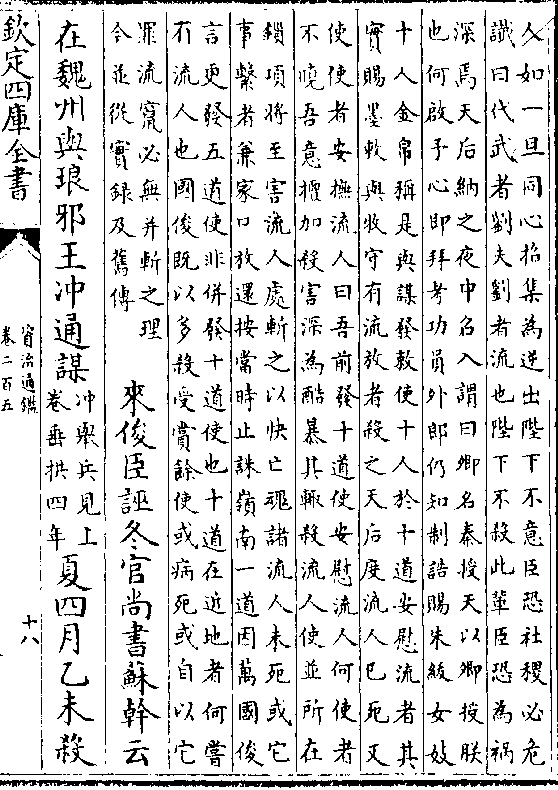 人如一旦同心招集為逆出陛下不意臣恐社稷必危
讖曰代武者劉夫劉者流也陛下不殺此輩臣恐為禍
深焉天后納之夜中召入謂曰卿名秦授天以卿授朕
也何啟予心即拜考功員外郎仍知制誥賜朱紱女妓
十人金帛稱是與謀發敕使十人於十道安慰流者其
實賜墨敕與牧守有流放者殺之天后度流人已死又
使使者安撫流人曰吾前發十道使安慰流人何使者
不曉吾意擅加殺害深為酷暴其輒殺流人使並所在
鎖項將至害流人處斬之以快亡魂諸流人未死或它
事繫者兼家口放還按當時止誅嶺南一道因萬國俊
言更發五道使非併發十道使也十道在近地者何嘗
有流人也國俊既以多殺受賞餘使或病死或自以它
罪流竄必無并斬之理
今並從實録及舊傳
來俊臣誣冬官尚書蘇幹云
在魏州與琅邪王冲通謀
冲舉兵見上
卷垂拱四年
夏四月乙未殺
欽定四庫全書
資治通鑑
卷二百五
十八